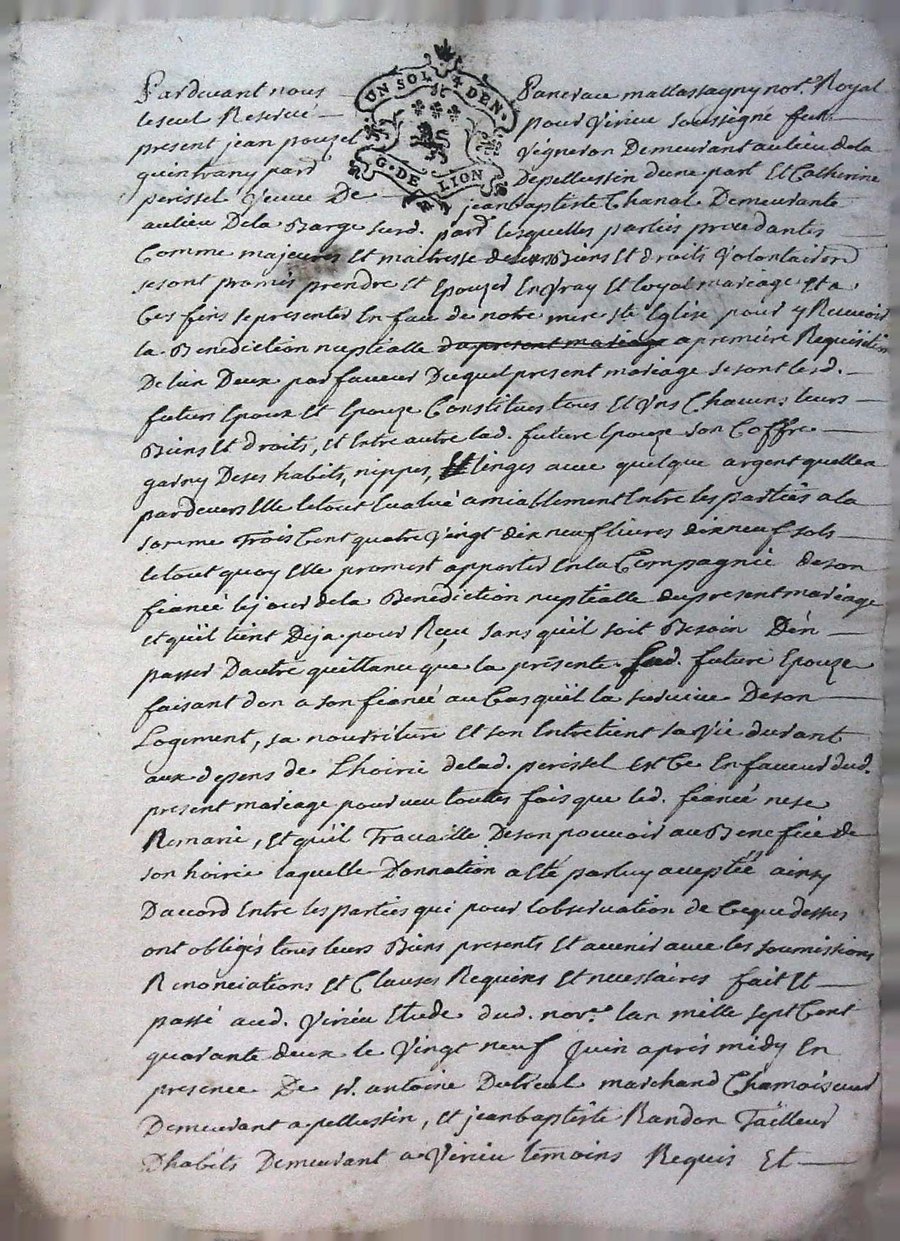 UN SOL 4 DEN.
G. DE LION
Pardevant nous Pancrace mallassagny nore. Royal
le seul Reservé pour Virieu soussigné fut
present jean pouzet Vigneron Demeurant au lieu de la
par Depellussin d'une part Et Catherine
perissel Veuve De jean baptiste Chanal Demeurante
au lieu De la Barge surd. pard. lesquelles parties procedantes
Comme majeures Et maitresse de leurs Biens Et droits Volontairem
se sont promis prendre Et Epouzer En Vray Et loyal mariage Et a
Ces fins se presenter En face de notre mere ste Eglise pour y Recevoir
la Benediction nuptialle du present mariage a premiere Requisition
De lun Deux par faveur Duquel present mariage se sont lesd.
futurs Epoux Et Epouze Constitues tous Et Uns Chacuns leurs
Biens Et droits, Et Entre autre lad. future Epouze son Coffre
garny De ses habits, nippes, Et linges avec quelque argent quelle a
pardevers Elle le tout Evalué amiablement Entre les parties a la
somme Trois Cent quatre Vingt dix neuf livres dix neuf sols
le tout quoy Elle promest apporter En la Compagnie de son
fiancé le jour de la Benediction nuptialle du present mariage
Et quil tient Deja pour Reçu sans quil soit Besoin Den
passer Dautre quittance que la présente lad. future Epouze
faisant don a son fiancé au Cas quil la survive De son
Logement, sa nourriture Et son Entretient sa Vie durant
aux depens de Lhoirie de lad. perissel Et Ce En faveur dud.
present mariage pourveu touttes fois que led. fiancé ne se
Remarie, Et quil Travaille De son pouvoir au Benefice de
son hoirie laquelle Donnation a Eté par luy acceptée ainsy
Daccord Entre les parties qui pour lobservation de Ce que dessus
ont obligés tous leurs Biens presents Et avenir avec les soumissions
Renonciations Et Clauses Requises Et necessaires fait Et
passé aud. Virieu Etude dud. nore. lan mille sept Cent
quarante deux le Vingt neuf Juin aprés midy En
presence De sr. antoine Dutreul marchand Chamoiseur
Demeurant a pellussin, Et jean baptiste Randon Tailleur
Dhabits Demeurant a Virieu temoins Requis Et